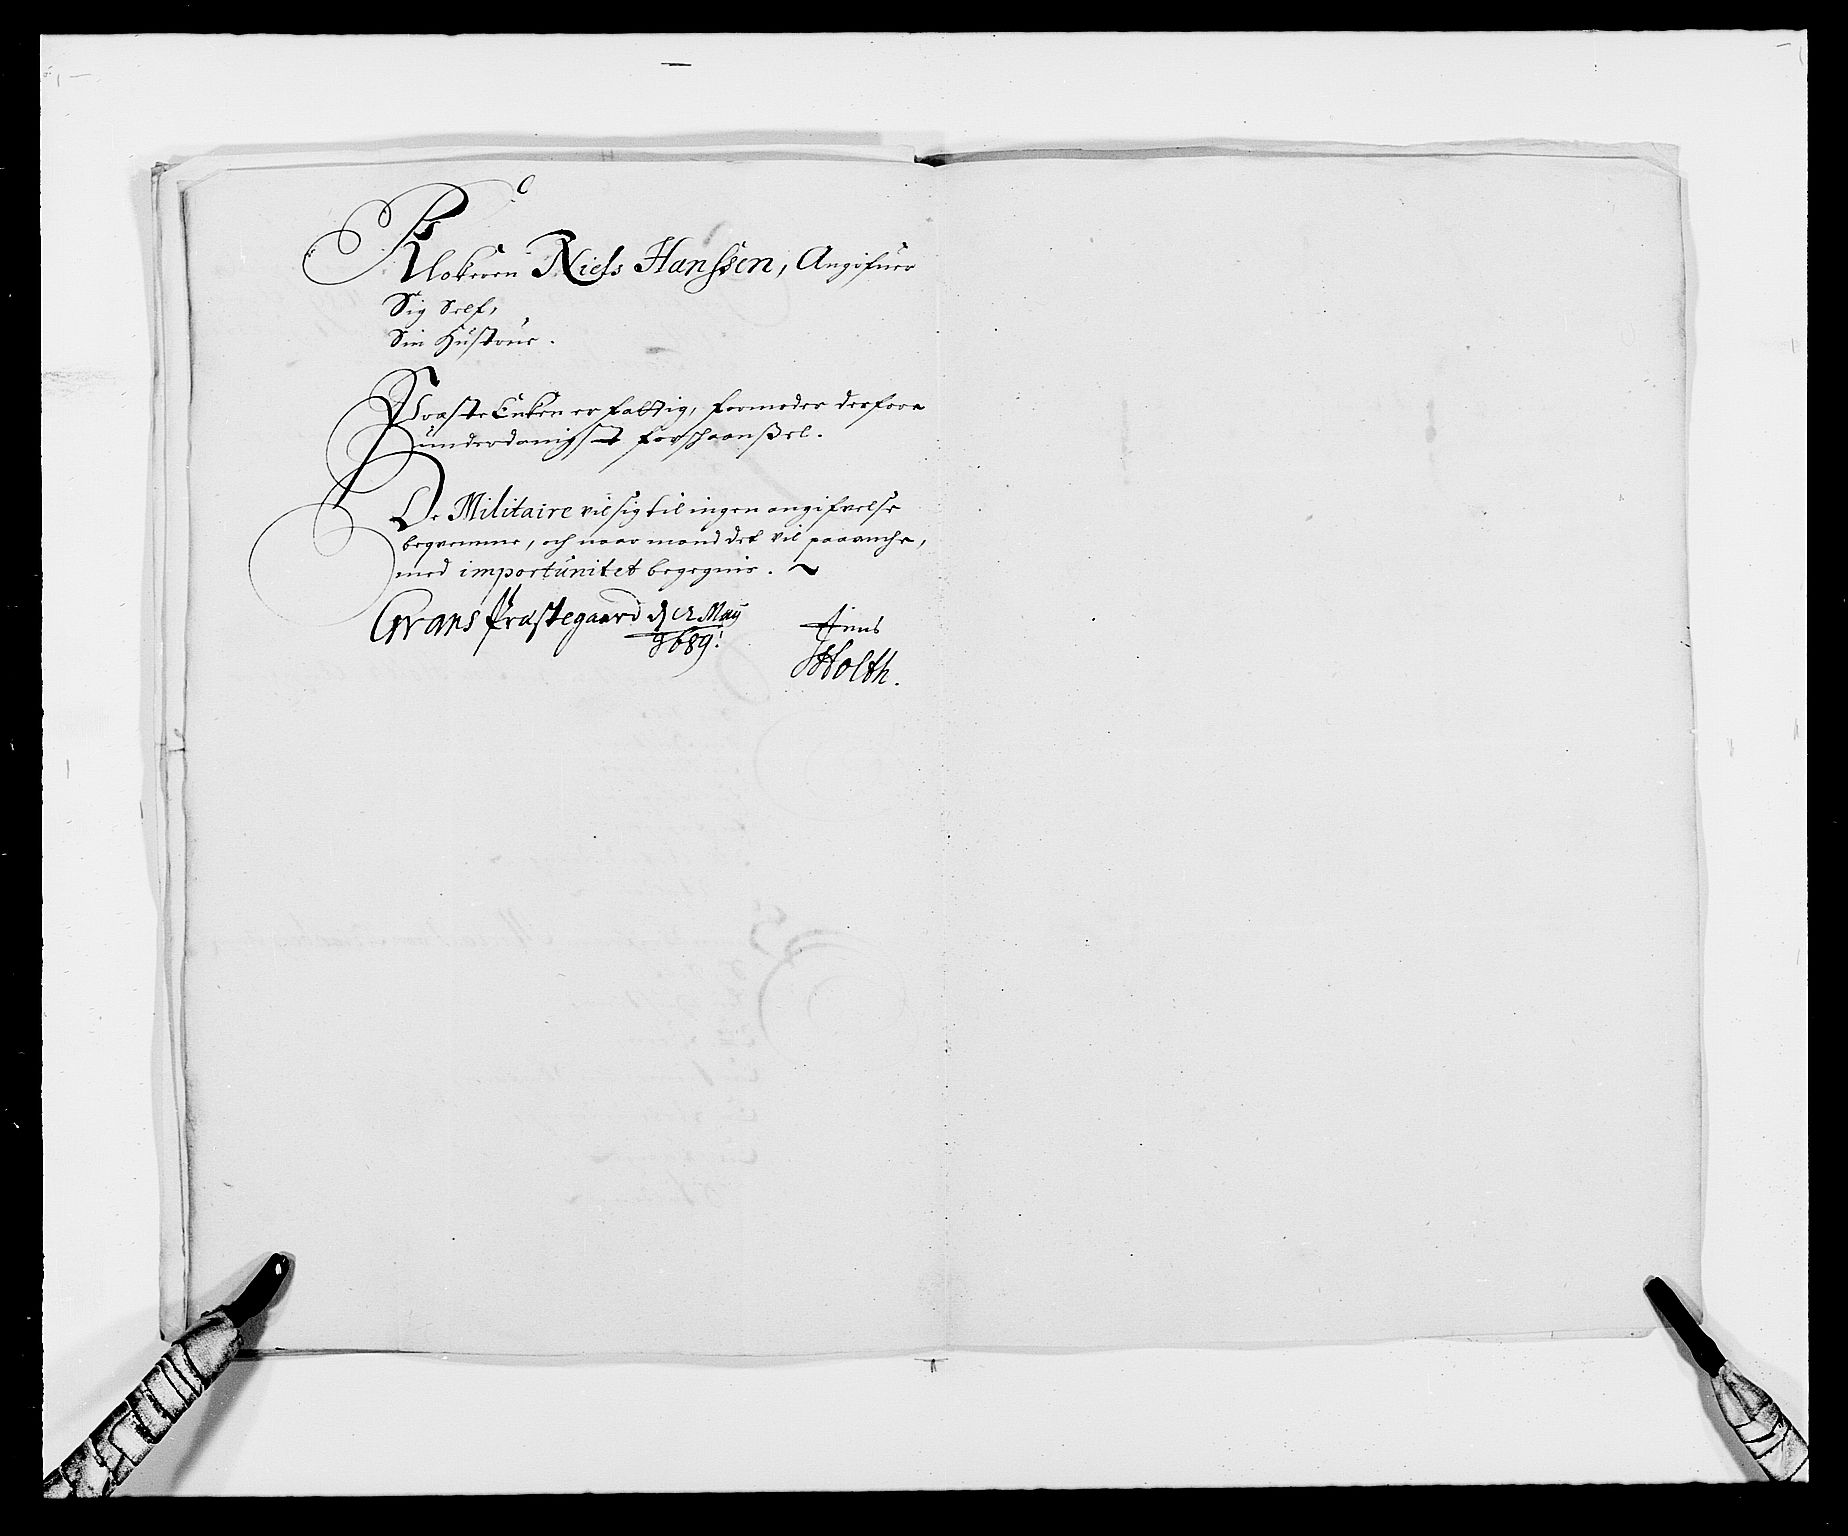 Klokeren Niels Hanssen, Angifuer
Sig Self,
Sin Hustrue.
Præste Enken er fattig, formoder derfore
underdanigst forschaanßel.
De Militaire vil sig til ingen angifvelse
beqvemme, och naar mand det vil paaanche,
med importunitet begegnis.
Grans Præstegaard d. 2 May
1689.
Jens
Holth.